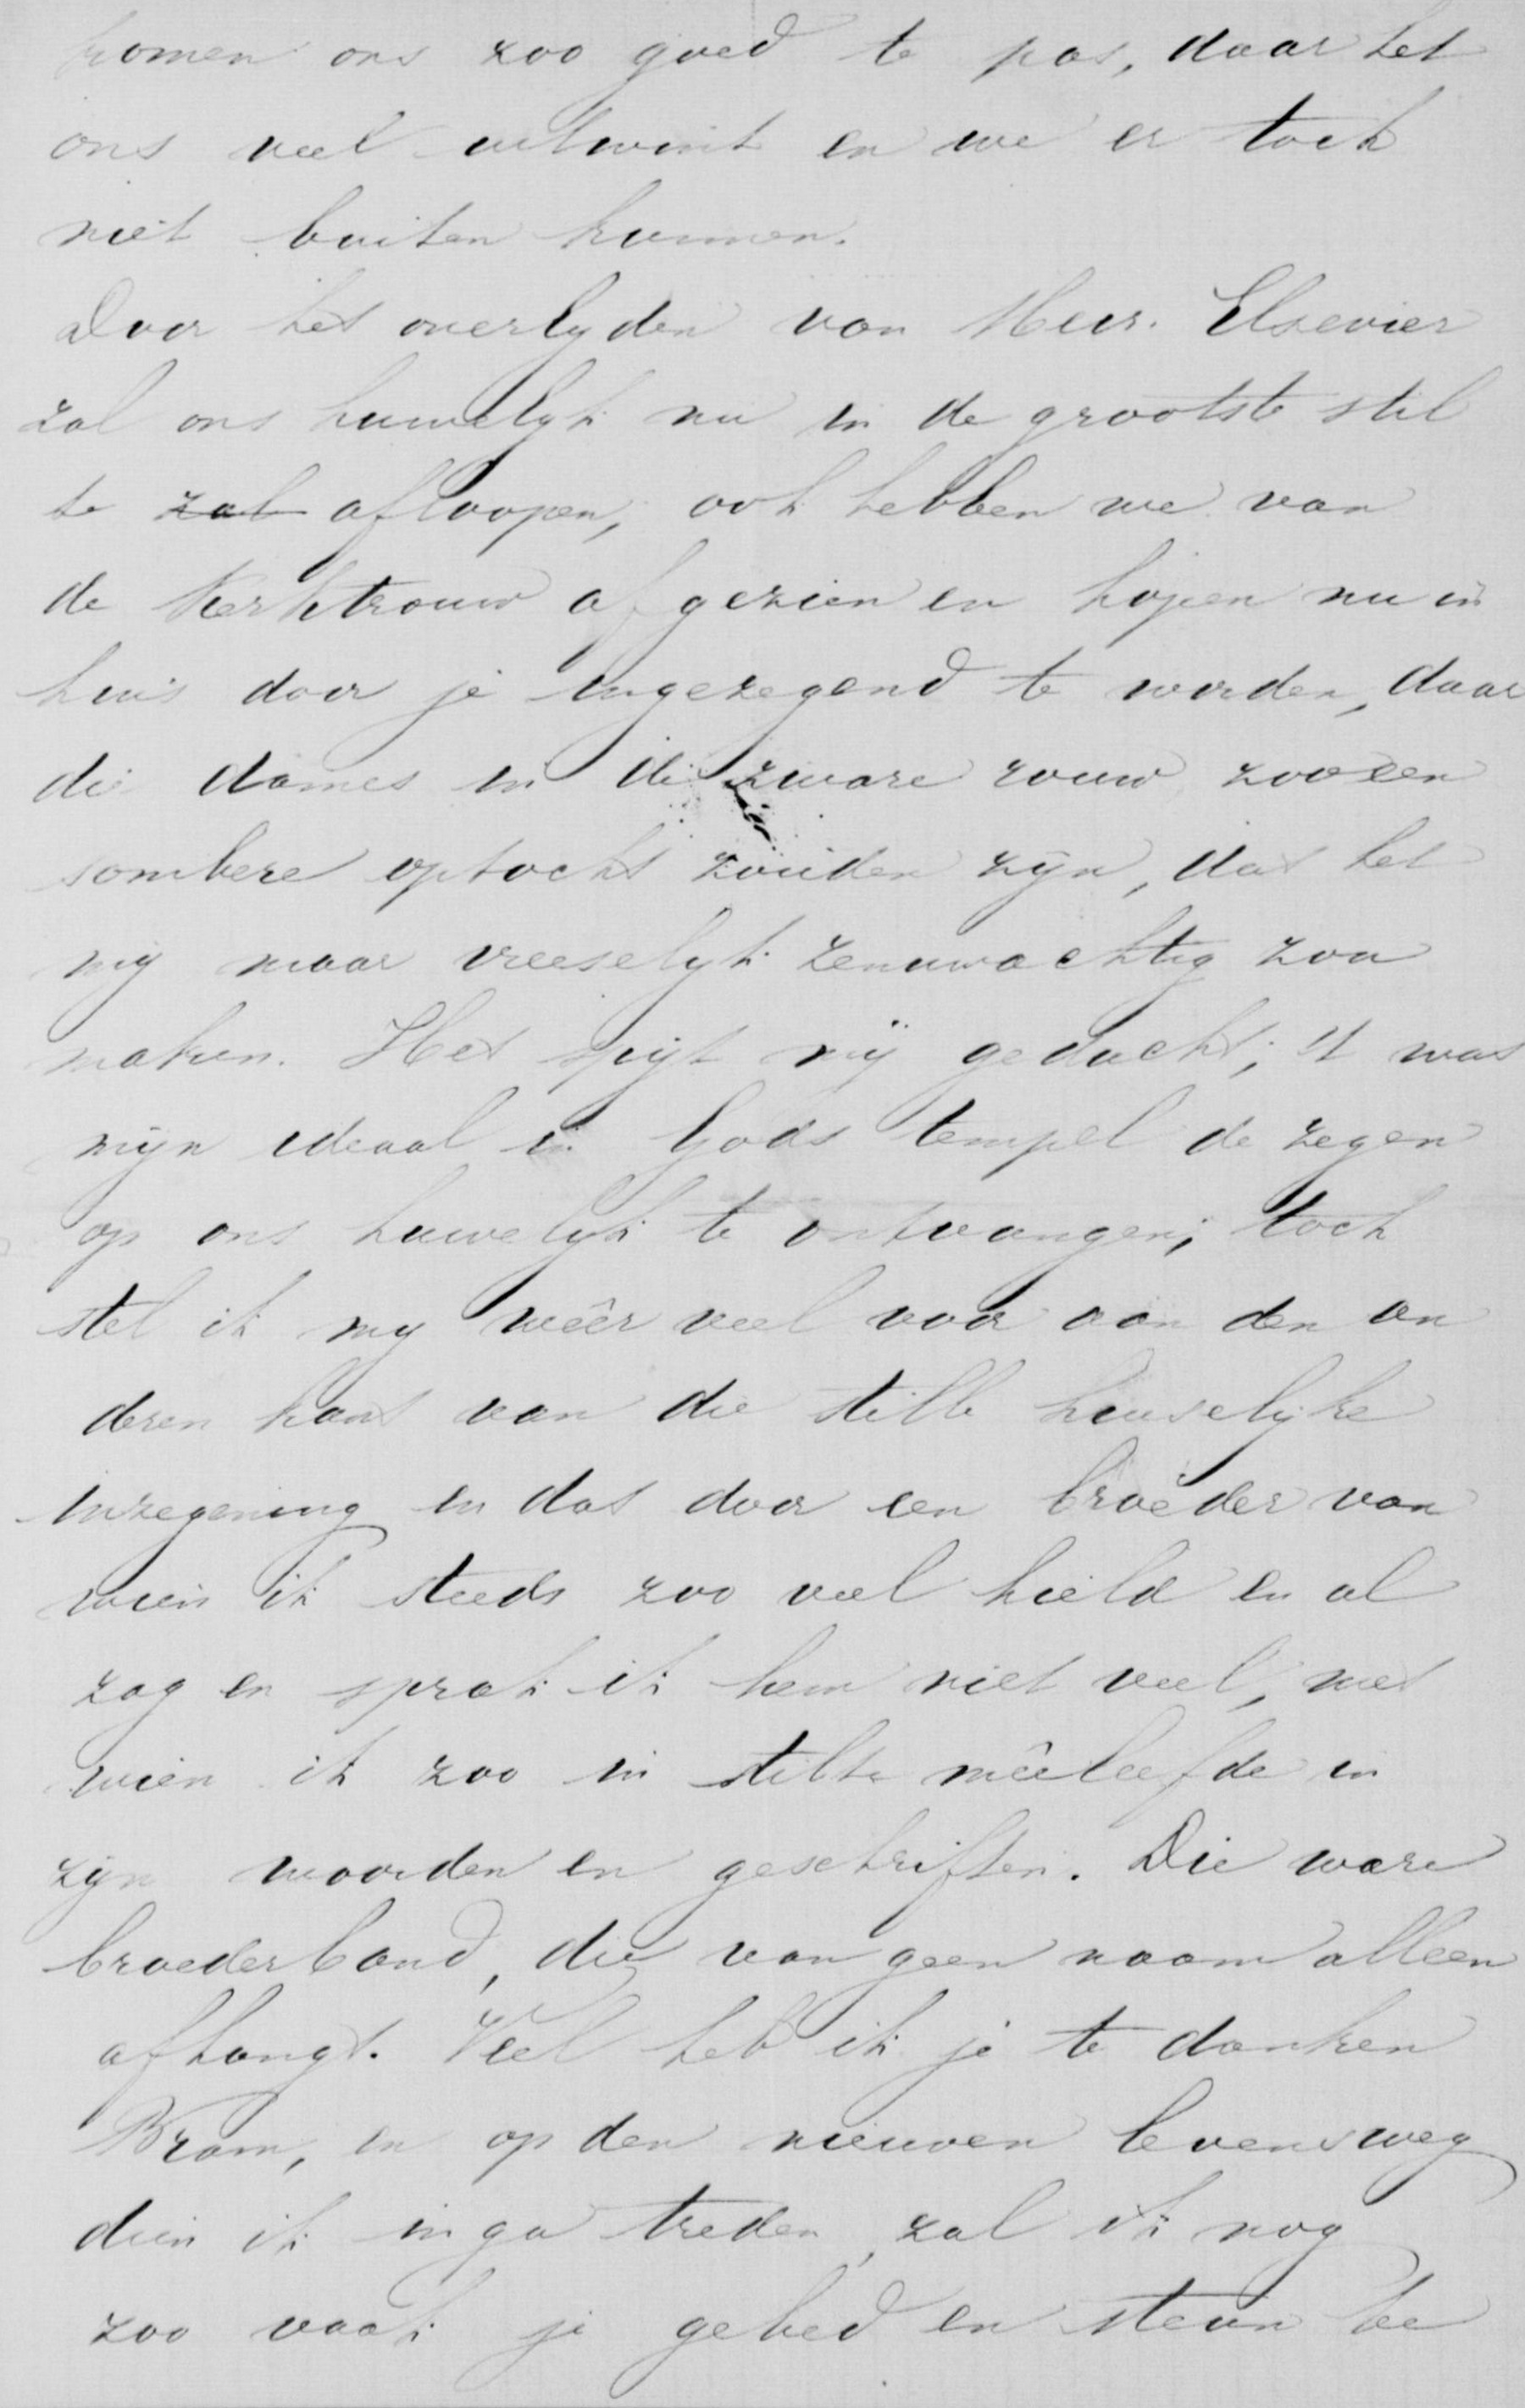 komen ons zoo goed te pas, daar het
ons veel uitwint en we er toch
niet buiten kunnen.
Door het overlyden van Meer. Elsevier
zal ons huwelyk nu in de grootste stil
te zal afloopen, ook hebben we van
de Kerktrouw afgezien en hopen nu in
huis door je ingezegend te worden, daar
die dames in die zware rouw zoo een
sombere optocht zouden zijn, dat het
my maar vreeselyk zenuwachtig zou
maken. Het spijt mij geducht; 't was
mijn ideaal in Gods tempel de zegen
op ons huwelijk te ontvangen; toch
stel ik my wêer veel voor aan den an
deren kant van die stille huiselijke
inzegening en dat door een broeder van
wien ik steeds zoo veel hield en al
zag en sprak ik hem niet veel, met
wien ik zoo in stilte mêeleefde in
zijn woorden en geschriften. Die ware
broederband, die van geen naam alleen
afhangt. Veel heb ik je te danken
Bram, en op den nieuwen levensweg
dien ik in ga treden, zal ik nog
zoo vaak je gebed en steun be